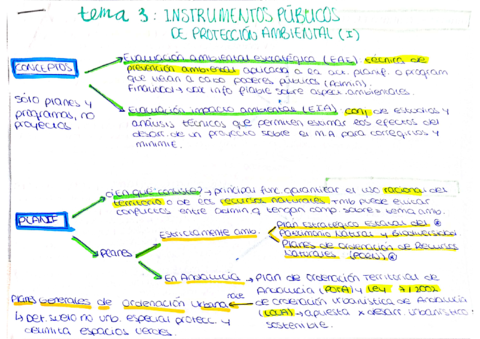 tema 3: INSTRUMENTOS PÚBLICOS
DE PROTECCIÓN AMBIENTAL (I)
CONCEPTOS
Evaluación ambiental estratégica (EAE) técnica de
prevención ambiental aplicada a la act. planif. o program
que llevan a cabo poderes públicos (admin).
Finalidad → info fiable sobre aspect. ambientales.
sólo planes y
programas, no
proyectos
Evaluación impacto ambiental (EIA) conj de estudios y
análisis técnicos que permiten estimar los efectos del
desarr. de un proyecto sobre el M.A para corregirlos y
minimiz.
PLANIF
¿En qué consiste? → principal func. garantizar el uso racional del
territorio o de los recursos naturales. tmb puede evitar
conflictos entre admin q tengan comp sobre = tema amb.
PLANES
Estrictamente amb.
Plan estratégico estatal del
Patrimonio Natural y Biodiversidad
Planes de Ordenación de Recursos
Naturales (PORN)
En Andalucía → Plan de Ordenación Territorial de
Andalucía (POTA) y Ley 7/2002
de ordenación urbanística de Andalucía
(LOUA) → apuesta x desarr. urbanístico
sostenible.
Planes Generales de Ordenación Urbana
↳ Det. suelo no urb. especial protecc. y
delimita espacios verdes.